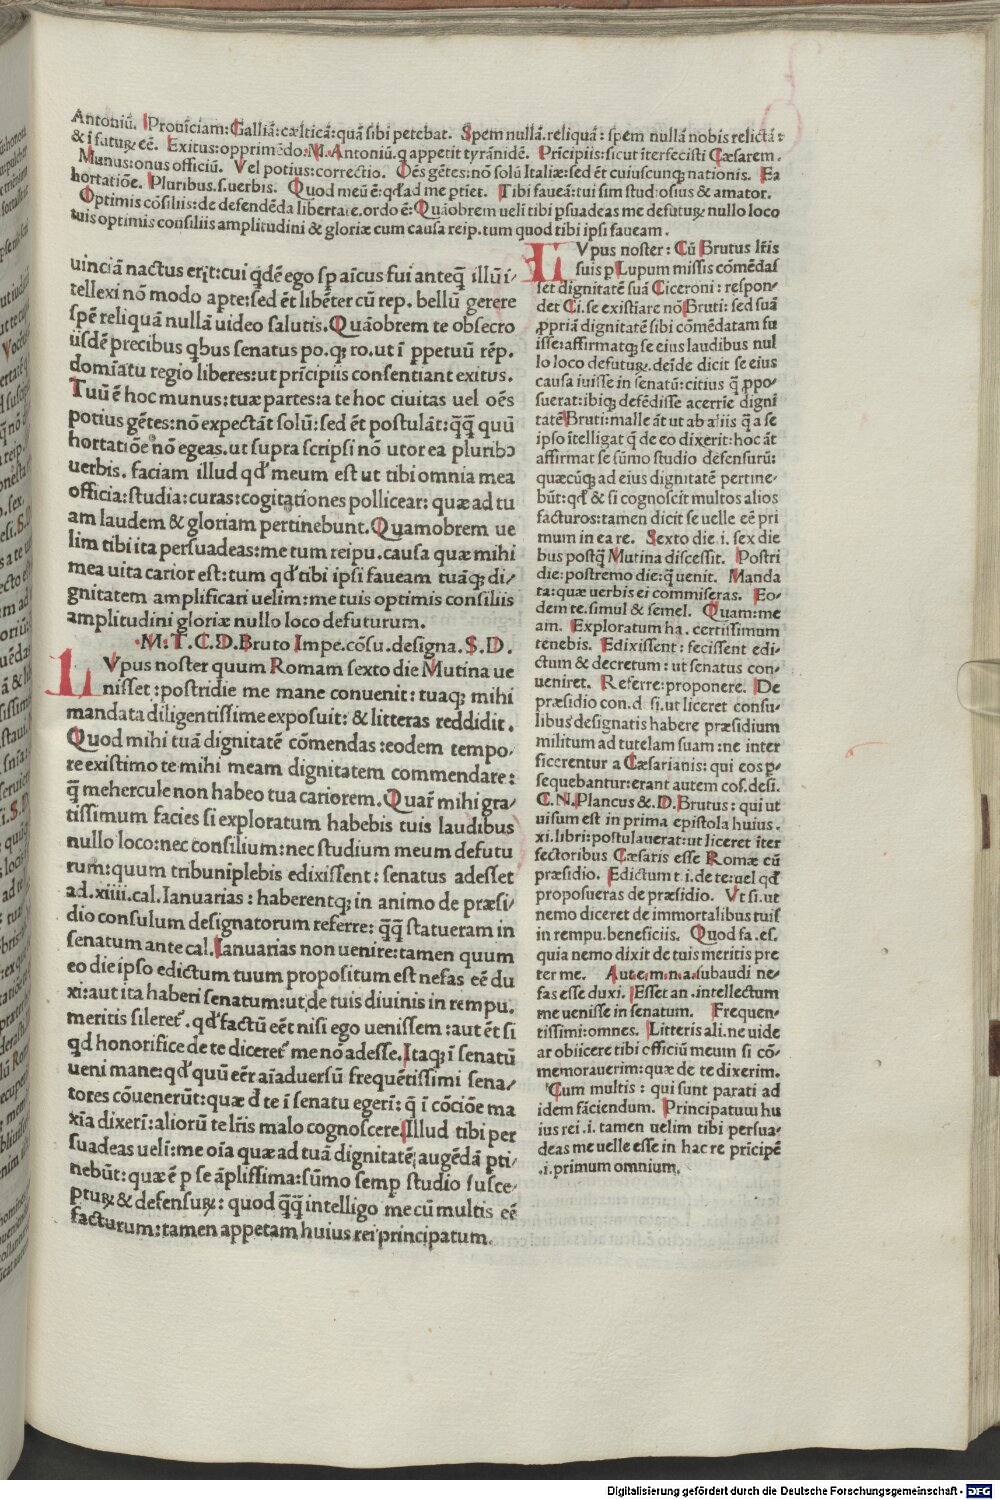 Antoniũ. Prouĩciam: Galliã: cælticã: quã sibi petebat. Spem nullã. reliquã: spem nullã nobis relictã:
& ĩ futuꝝ eē. Exitus: opprimẽdo: M. Antoniũ. q appetit tyrãnidẽ. Prĩcipiis: sicut ĩterfecisti Cæsarem.
Munus: onus officiũ. Vel potius: correctio. Oẽs gẽtes: nõ solũ Italiæ: sed ẽt cuiuscunq; nationis. Ea
hortatiõe. Pluribus. s. uerbis. Quod meũ ẽ: qđ ad me ptiet. Tibi faueã: tui sim studiosus & amator.
Optimis cõsiliis: de defendẽda libertate. ordo ẽ: Quãobrem ueli tibi psuadeas me defutuꝝ nullo loco
tuis optimis consiliis amplitudini & gloriæ cum causa reip. tum quod tibi ipsi faueam.
uinciã nactus erit: cui qđẽ ego sp aĩcus fui anteq̃ illũ ĩ-
tellexi nõ modo apte: sed ẽt libẽter cũ rep. bellũ gerere
spẽ reliquã nullã uideo salutis. Quãobrem te obsecro
iisdẽ precibus qbus senatus po. q; ro. ut ĩ ppetuũ rẽp.
domĩatu regio liberes: ut prĩcipiis consentiant exitus.
Tuũ ẽ hoc munus: tuæ partes: a te hoc ciuitas uel oẽs
potius gẽtes: nõ expectãt solũ: sed ẽt postulãt: q̃q̃ quũ
hortatiõe nõ egeas. ut supra scripsi nõ utor ea pluribꝰ
uerbis. faciam illud qđ meum est ut tibi omnia mea
officia: studia: curas: cogitationes pollicear: quæ ad tu
am laudem & gloriam pertinebunt. Quamobrem ue
lim tibi ita persuadeas: me tum reipu. causa quæ mihi
mea uita carior est: tum qđ tibi ipsi faueam tuãq; di-
gnitatem amplificari uelim: me tuis optimis consiliis
amplitudini gloriæ nullo loco defuturum.
.M. T. C. D. Bruto Impe. cõsu. designa. S. D.
LVpus noster quum Romam sexto die Mutina ue
nisset: postridie me mane conuenit: tuaq; mihi
mandata diligentissime exposuit: & litteras reddidit.
Quod mihi tuã dignitatẽ cõmendas: eodem tempo-
re existimo te mihi meam dignitatem commendare:
q̃ mehercule non habeo tua cariorem. Quar̃ mihi gra-
tissimum facies si exploratum habebis tuis laudibus
nullo loco: nec consilium: nec studium meum defutu
rum: quum tribuni plebis edixissent: senatus adesset
ad. xiiii. cal. Ianuarias: haberentq; in animo de præsi-
dio consulum designatorum referre: q̃q̃ statueram in
senatum ante cal. Ianuarias non uenire: tamen quum
eo die ipso edictum tuum propositum est nefas eẽ du
xi: aut ita haberi senatum: ut de tuis diuinis in rempu.
meritis sileret̃. qđ factũ eẽt nisi ego uenissem: aut ẽt si
qđ honorifice de te diceret̃ me nõ adesse. Itaq; ĩ senatũ
ueni mane: qđ quũ eẽt aĩaduersũ frequẽtissimi sena-
tores cõuenerũt: quæ đ te ĩ senatu egerĩ: q̃ ĩ cõciõe ma
xĩa dixerĩ: aliorũ te lr̃is malo cognoscere. Illud tibi per
suadeas uelĩ: me oĩa quæ ad tuã dignitatẽ augẽdã pti-
nebũt: quæ ẽ p se ãplissima: sũmo semp studio susce-
ptuꝝ & defensuꝝ: quod q̃q̃ intelligo me cũ multis eẽ
facturum: tamen appetam huius rei principatum.
LVpus noster: Cũ Brutus lr̃is
suis p Lupum missis cõmẽdas
set dignitatẽ suã Ciceroni: respon-
det Ci. se existiare nõ Bruti: sed suã
ppriã dignitatẽ sibi cõmẽdatam fu
isse: affirmatq; se eius laudibus nul
lo loco defutuꝝ. deĩde dicit se eius
causa iuisse in senatũ: citius q̃ ppo-
suerat: ibiq; defẽdisse acerrie dignĩ
tatẽ Bruti: malle ãt ut ab aliis q̃ a se
ipso ĩtelligat q̃ de eo dixerit: hoc ãt
affirmat se sũmo studio defensurũ:
quæcũq; ad eius dignitatẽ pertine-
bũt: qđ & si cognoscit multos alios
facturos: tamen dicit se uelle eẽ pri
mum in ea re. Sexto die. i. sex die
bus postq̃ Mutina discessit. Postri
die: postremo die: q̃ uenit. Manda
ta: quæ uerbis ei commiseras. Eo-
dem te. simul & semel. Quam: me
am. Exploratum ha. certissimum
tenebis. Edixissent: fecissent edi-
ctum & decretum: ut senatus con-
ueniret. Referre: proponere. De
præsidio con. d. si. ut liceret consu-
libus designatis habere præsidium
militum ad tutelam suam: ne inter
ficerentur a Cæsarianis: qui eos p-
sequebantur: erant autem cos. desi.
C. N. Plancus &. D. Brutus: qui ut
uisum est in prima epistola huius.
xi. libri: postulauerat: ut liceret ĩter
fectoribus Cæsaris esse Romæ cũ
præsidio. Edictum t. i. de te: uel qđ
proposueras de præsidio. Vt si. ut
nemo diceret de immortalibus tuis
in rempu. beneficiis. Quod fa. es.
quia nemo dixit de tuis meritis pre
ter me. Aut e. m. n. a. subaudi ne-
fas esse duxi. Esset an. intellectum
me uenisse in senatum. Frequen-
tissimi: omnes. Litteris ali. ne uide
ar obiicere tibi officiũ meum si cõ-
memorauerim: quæ de te dixerim.
Cum multis: qui sunt parati ad
idem faciendum. Principatum hu
ius rei. i. tamen uelim tibi persua-
deas me uelle esse in hac re prĩcipẽ
.i. primum omnium.
Digitalisierung gefördert durch die Deutsche Forschungsgemeinschaft - DFG